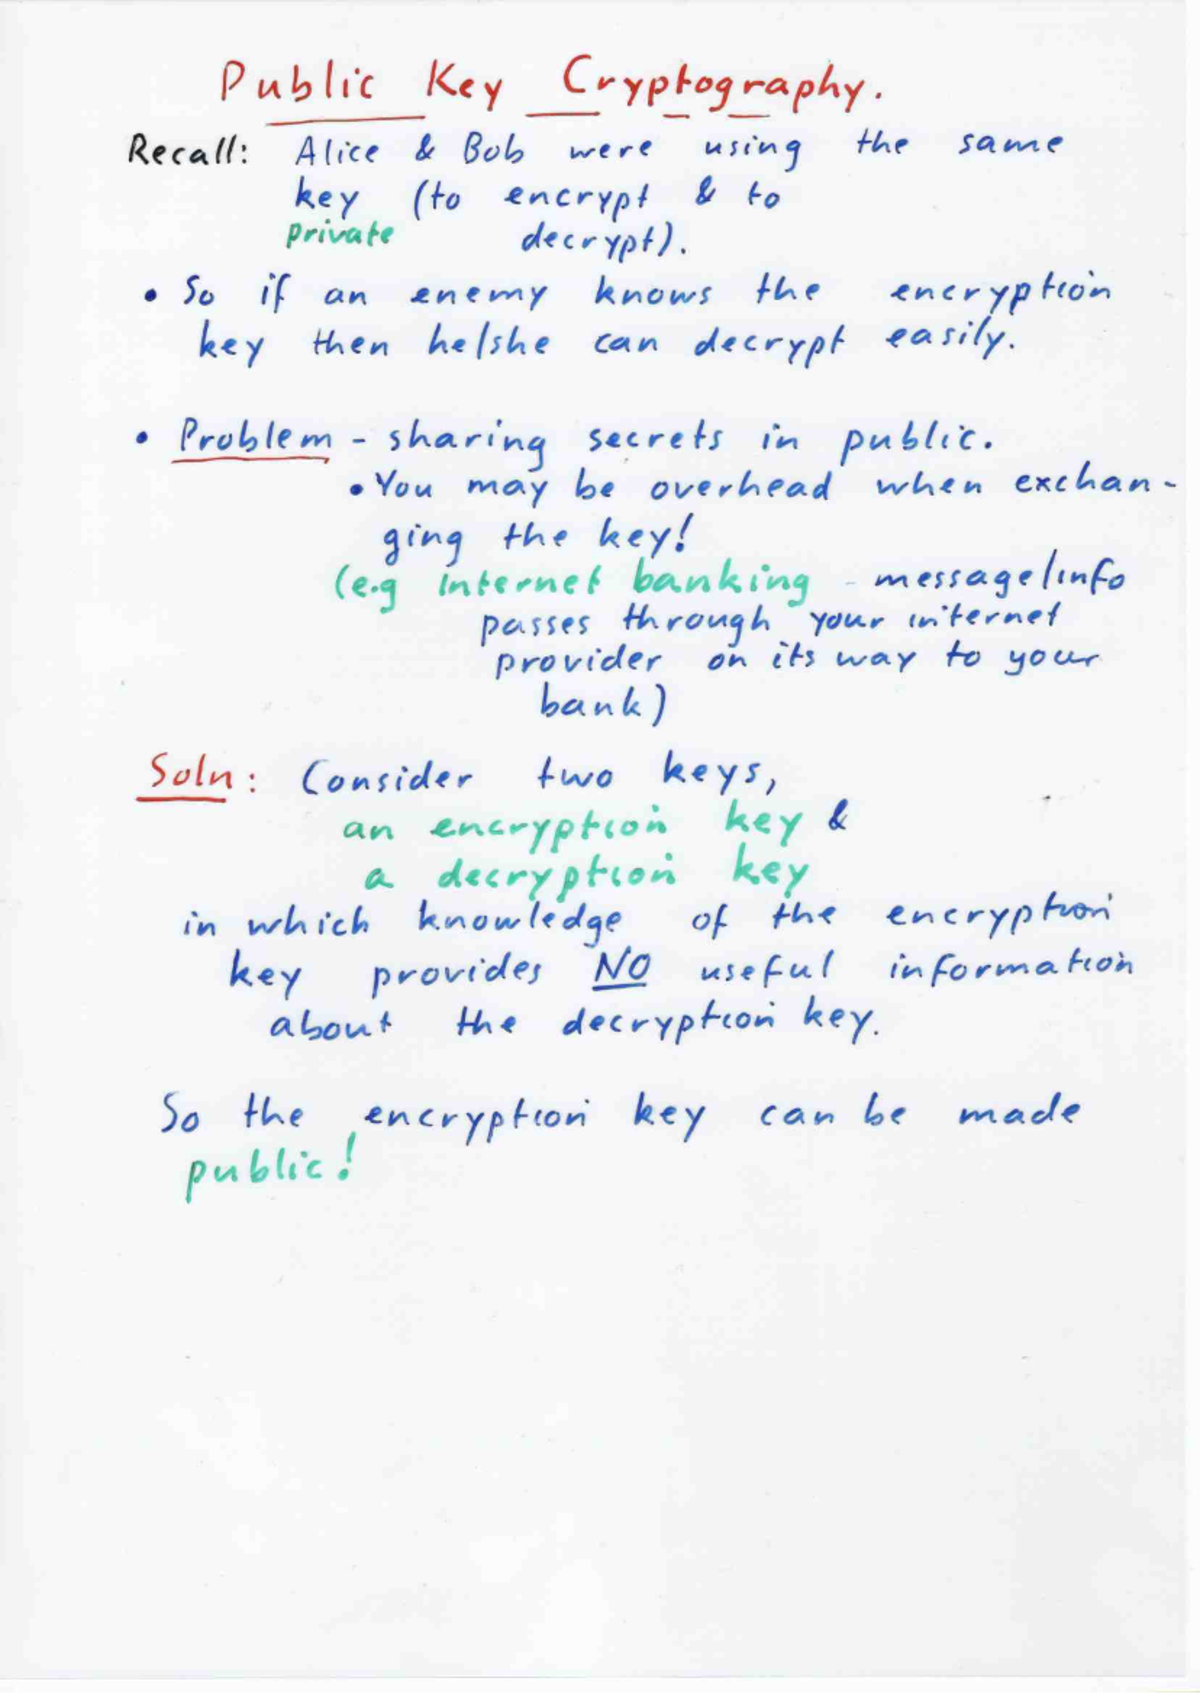 Public Key Cryptography.
Recall: Alice & Bob were using the same
key (to encrypt & to
private decrypt).
• So if an enemy knows the encryption
key then he/she can decrypt easily.
• Problem - sharing secrets in public.
• You may be overhead when exchan-
ging the key!
(e.g internet banking - message/info
passes through your internet
provider on its way to your
bank)
Soln: Consider two keys,
an encryption key &
a decryption key
in which knowledge of the encryption
key provides NO useful information
about the decryption key.
So the encryption key can be made
public!